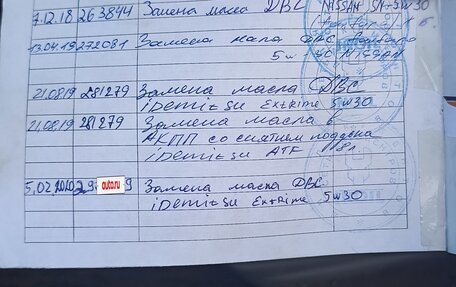 7.12.18 263844 Замена масла ДВС NISSAN SN+5W30
13.04.19 272081 Замена масла ДВС
5w40 NISSAN
21.08.19 281279 Замена масла ДВС
idemitsu Extrime 5w30
21.08.19 281279 Замена масла в
АКПП со снятием поддона
idemitsu ATF 8л
5.02.2020 29 auto.ru 9 Замена масла ДВС
idemitsu Extrime 5w30